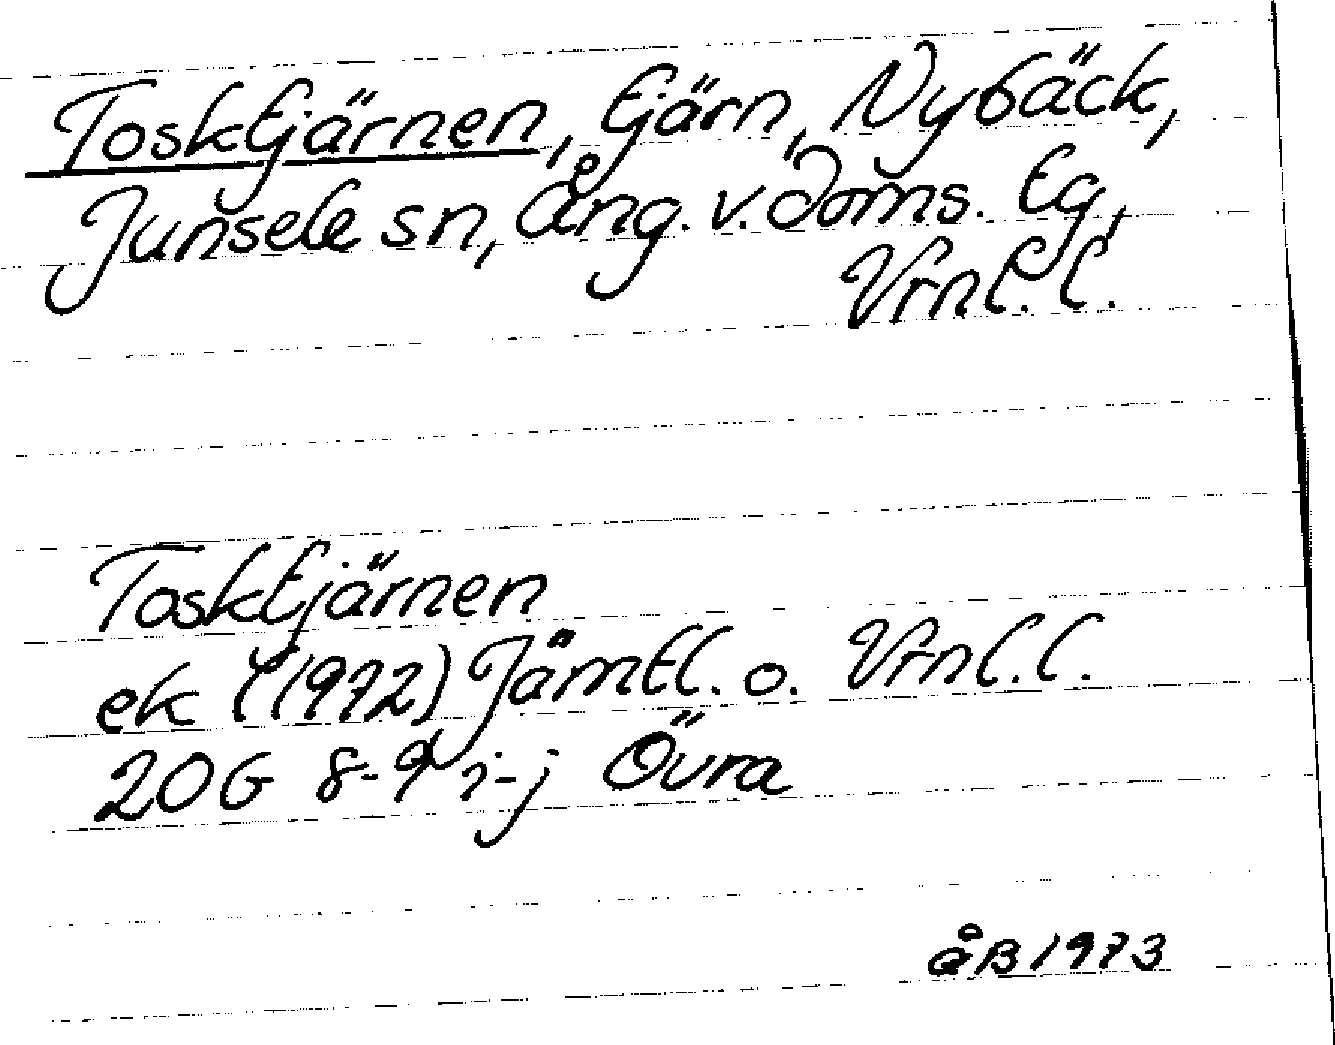 Tosktjärnen, tjärn, Nybäck,
Junsele sn, Ång. v. doms. tg,
Vrnl. l.
Tosktjärnen
ek (1972) Jämtl. o. Vrnl. l.
20G 8-9 i-j Övra
åB 1973